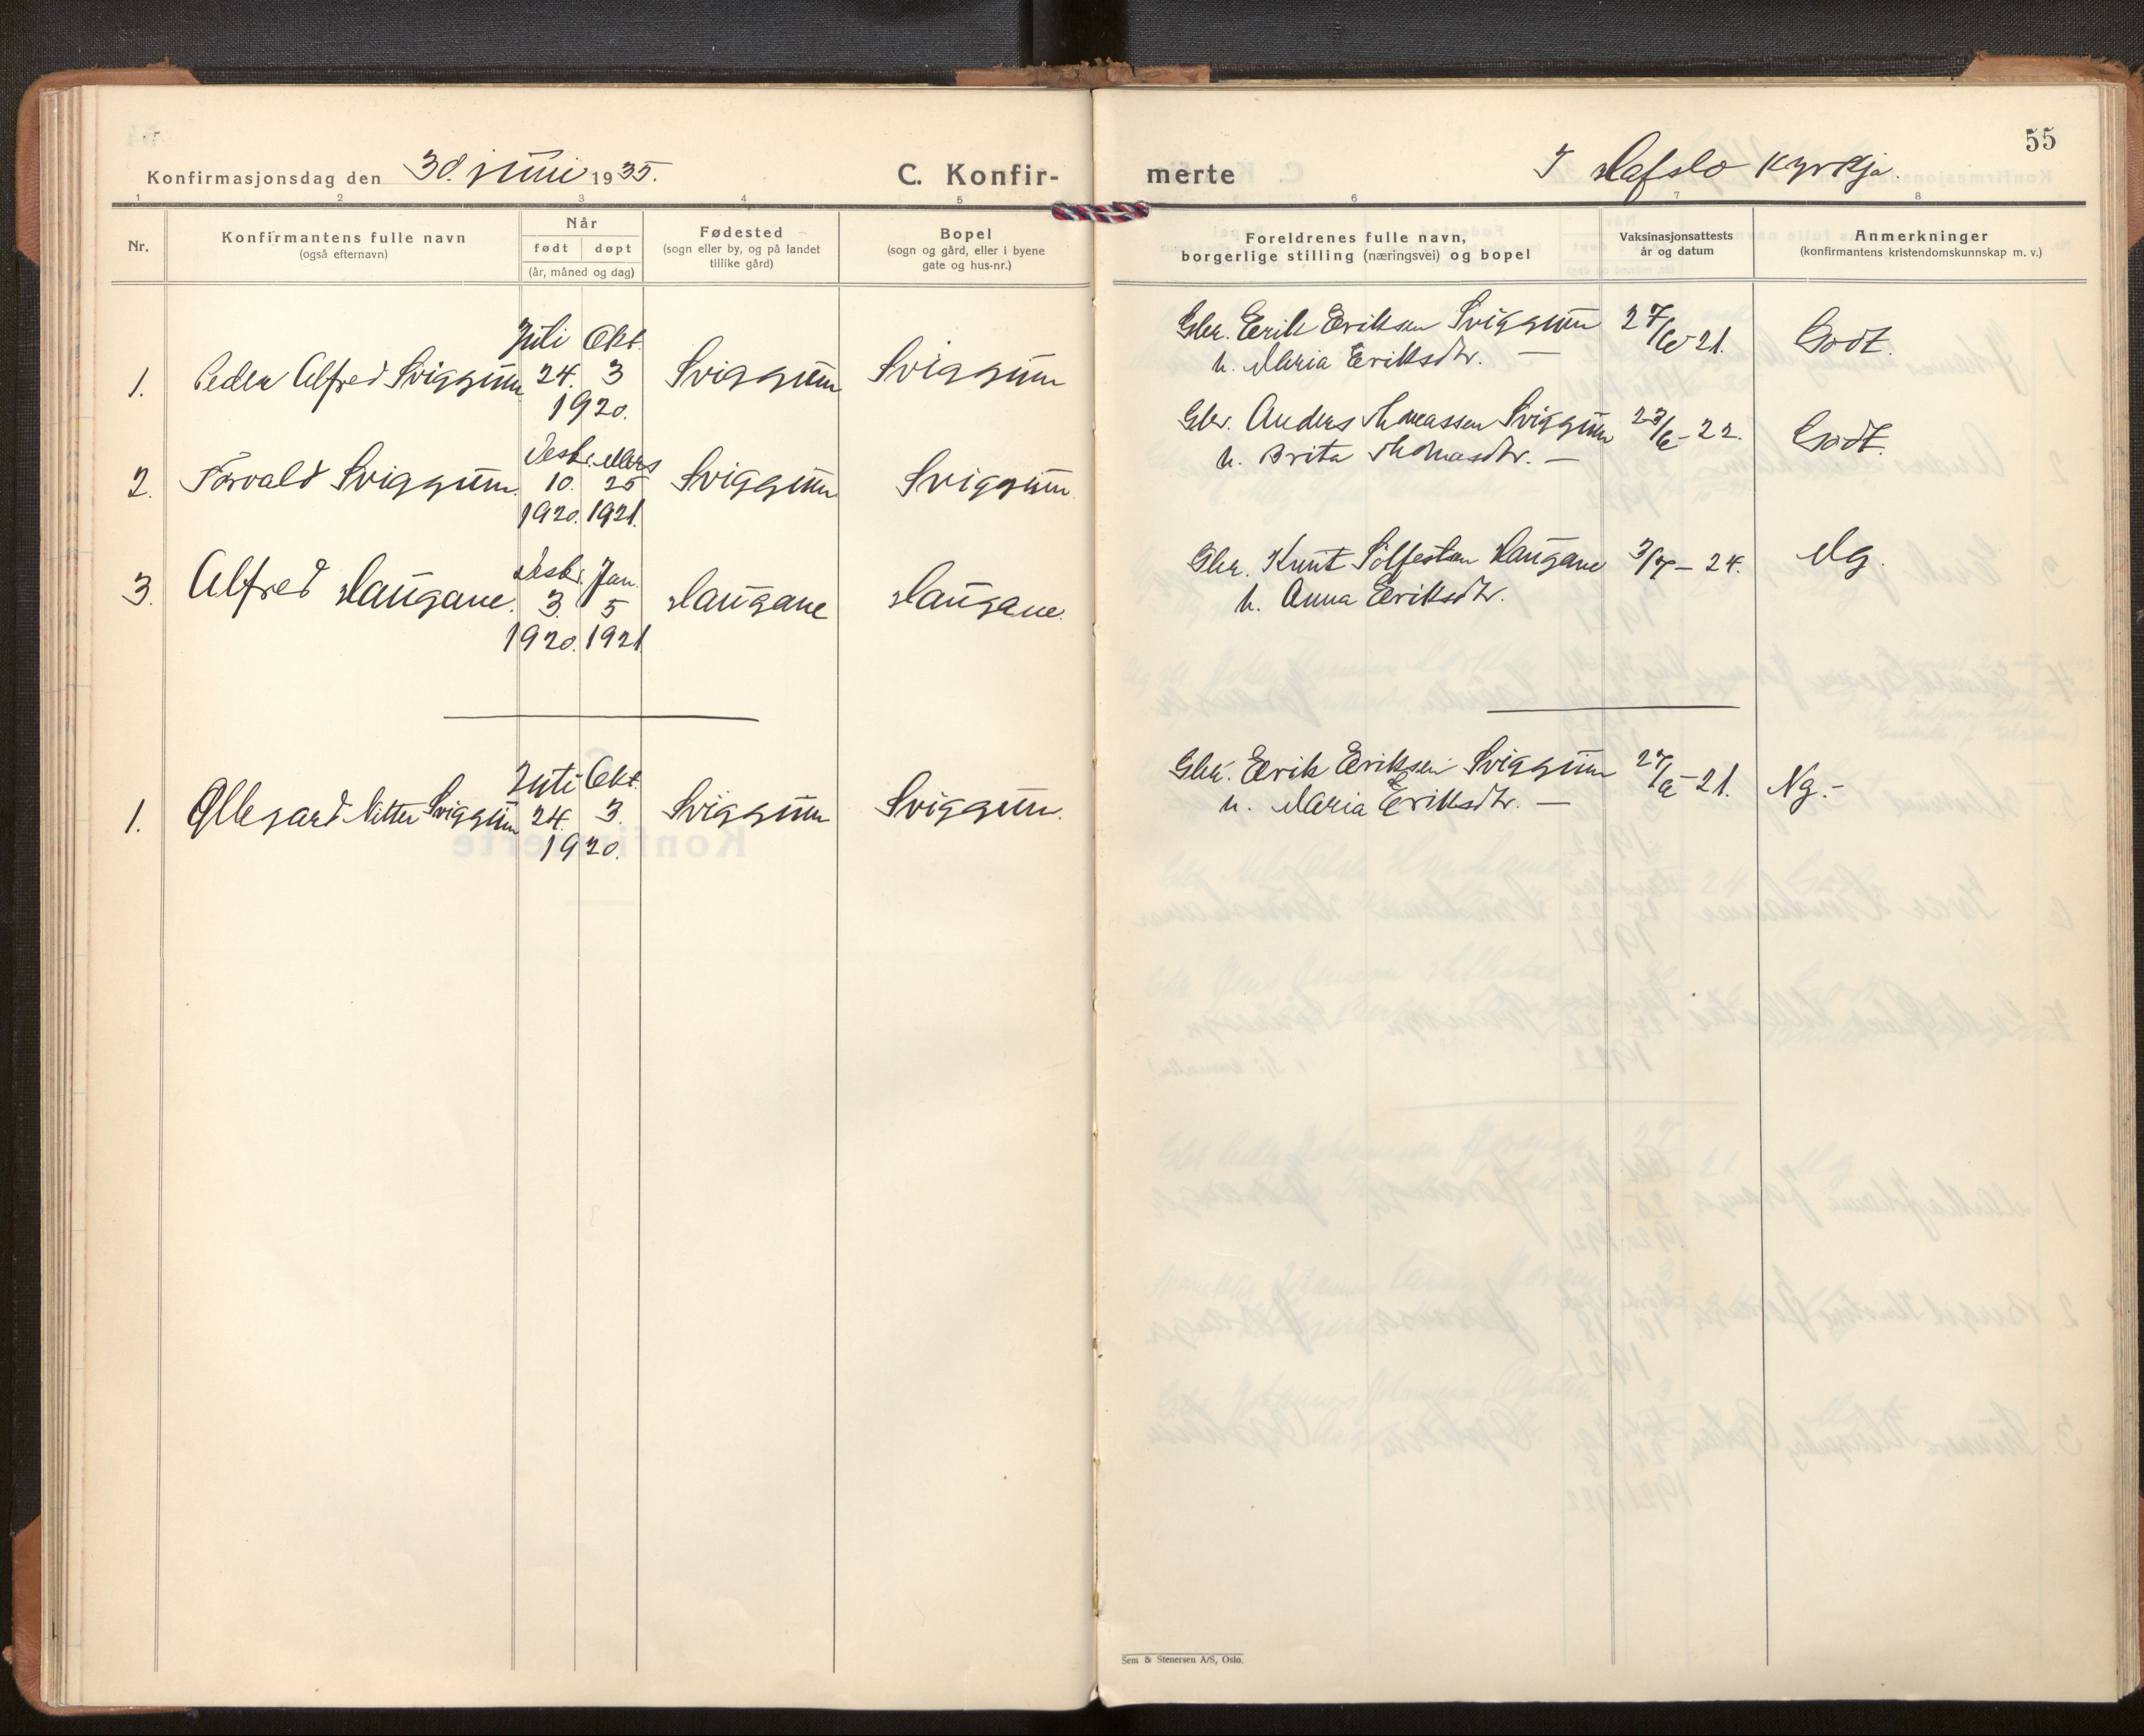 55
Konfirmasjonsdag den 30. juni 1935. C. Konfir- merte I Hafslo Kyrkja.
1 2 3 4 5 6 7 8
Nr. Konfirmantens fulle navn (også efternavn)
Når
født døpt
(år, måned og dag)
Fødested
(sogn eller by, og på landet
tillike gård)
Bopel
(sogn og gård, eller i byene
gate og hus-nr.)
Foreldrenes fulle navn,
borgerlige stilling (næringsvei) og bopel
Vaksinasjonsattests
år og datum
Anmerkninger
(konfirmantens kristendomskunnskap m. v.)
Juli Okt. Gbr. Eerik Eriksen Sviggum 27/6 21. Godt.
1. Peder Alfred Sviggum 24. 3 Sviggum Sviggum h. Maria Eriksdtr. —
1920.
Desbr. Mars Gbr. Anders Thomassen Sviggum 23/6 - 22. Godt.
2. Torvald Sviggum. 10. 25 Sviggum Sviggum. h. Brita Thomasdtr. —
1920. 1921.
Desbr. Jan. Gbr. Knut Solfesten Haugane 3/7 - 24. Mg.
3. Alfred Haugane. 3. 5 Haugane Haugane. h. Anna Eriksdtr.
1920. 1921
Juli Okt. Gbr. Eerik Eriksen Sviggum 27/6 - 21. Ng. -
1. Ollegard Nitter Sviggum 24. 3. Sviggum Sviggum. h. Maria Eriksdtr. —
1920.
Sem & Stenersen A/S, Oslo.